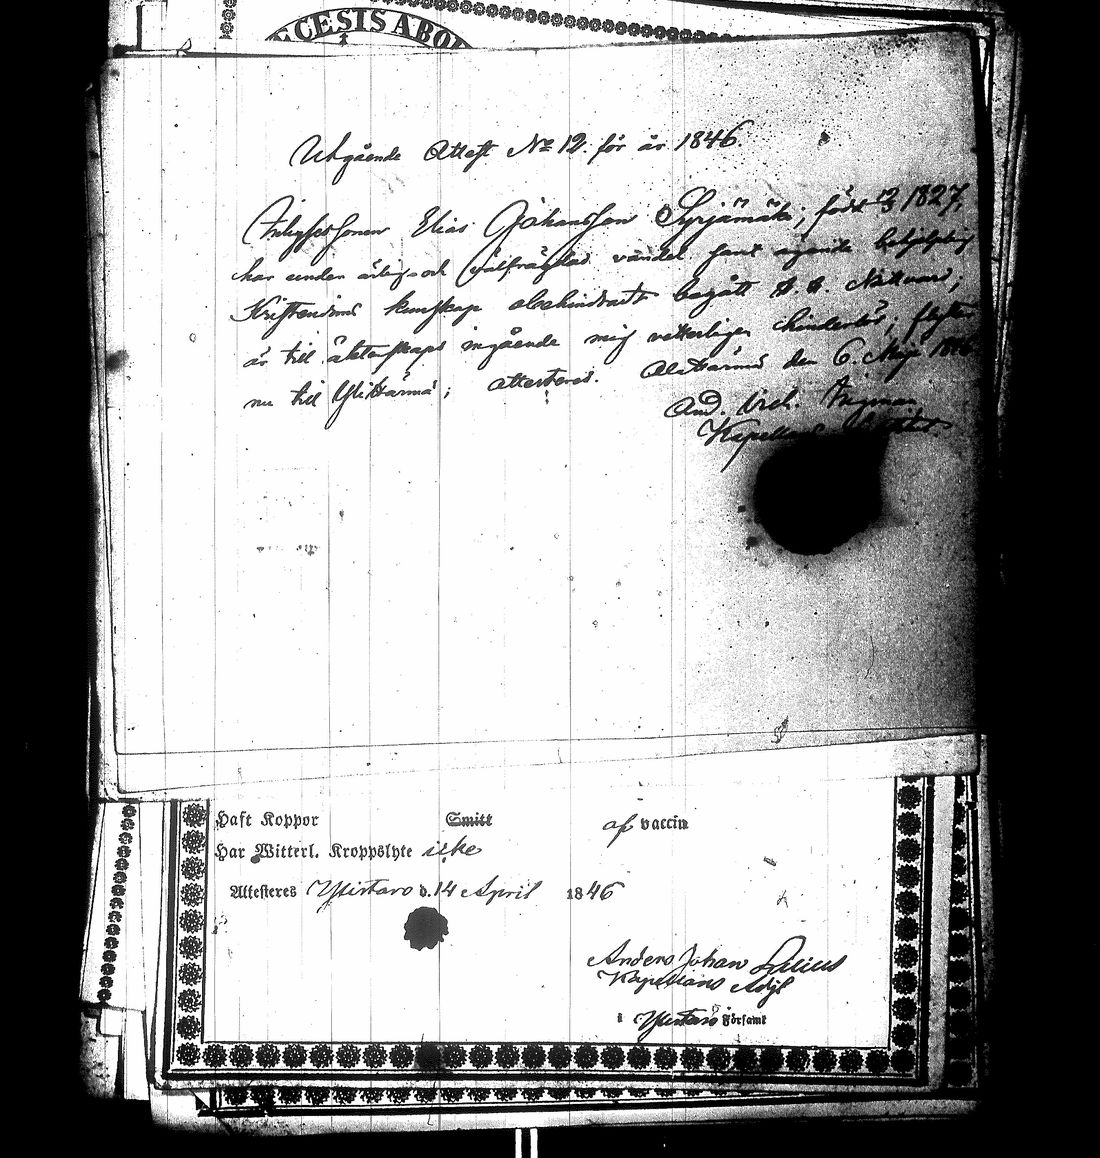 ECESIS ABO
Utgående Attest No 12. för år 1846.
Ynglingssonen Elias Johansson Syrjämäki; född 12/3 1827,
har under ärlig- och välfrägdad vandel sant ägande
Kristendoms kunskap obehindradt begått H. H. Nattvard;
är till äktenskaps ingående mig veterligen hinderlös; flyttar
nu till Ylihärmä; attesteras. Alahärmä den 6. Maji 1846
And. Wilh. Ingman
Kapellans
Haft Koppor Smitt af vaccin
Har Witterl. Kroppslyte icke
Attesteres Ylistaro d. 14 April 1846
Anders Johan Lilius
Kapellans Adj:
i Ylistaro Församl